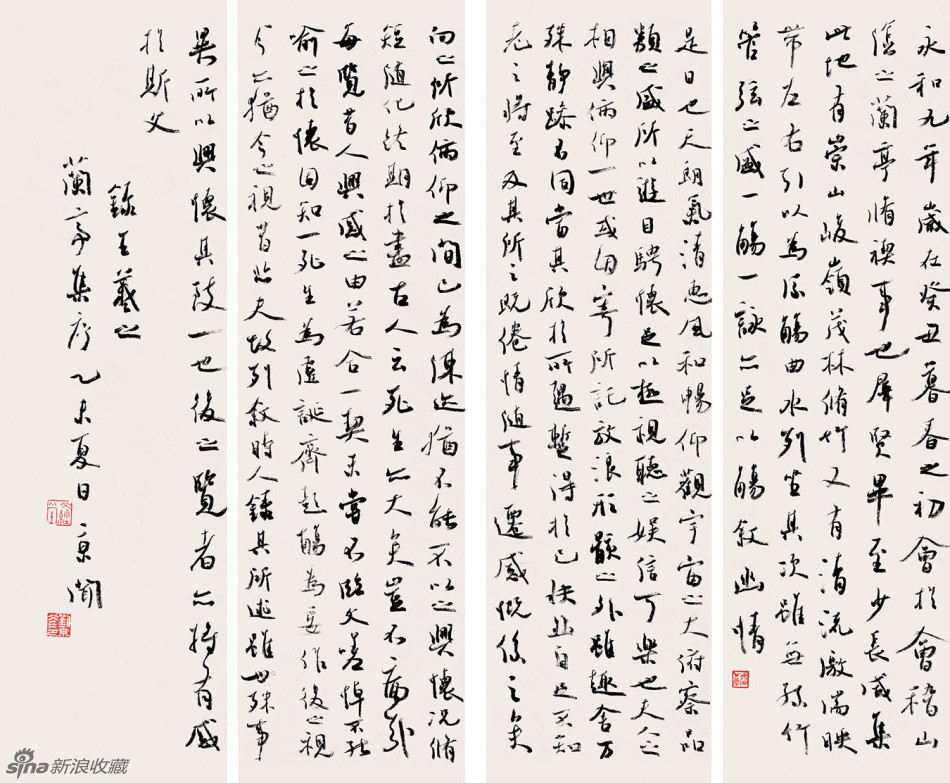 永和九年歲在癸丑暮春之初會於會稽山
陰之蘭亭脩禊事也羣賢畢至少長咸集
此地有崇山峻嶺茂林脩竹又有清流激湍映
帶左右引以為流觴曲水列坐其次雖無絲竹
管弦之盛一觴一詠亦足以觴敘幽情
是日也天朗氣清惠風和暢仰觀宇宙之大俯察品
類之盛所以遊目騁懷足以極視聽之娛信可樂也夫人之
相與俯仰一世或因寄所託放浪形骸之外雖趣舍萬
殊靜躁不同當其欣於所遇暫得於己快然自足不知
老之將至及其所之既倦情隨事遷感慨係之矣
向之所欣俯仰之間已為陳迹猶不能不以之興懷況脩
短隨化終期於盡古人云死生亦大矣豈不痛哉
每覽昔人興感之由若合一契未嘗不臨文嗟悼不能
喻之於懷固知一死生為虛誕齊彭殤為妄作後之視
今亦猶今之視昔悲夫故列敘時人錄其所述雖世殊事
異所以興懷其致一也後之覽者亦將有感
於斯文
錄王羲之
蘭亭集序乙未夏日
sina新浪收藏